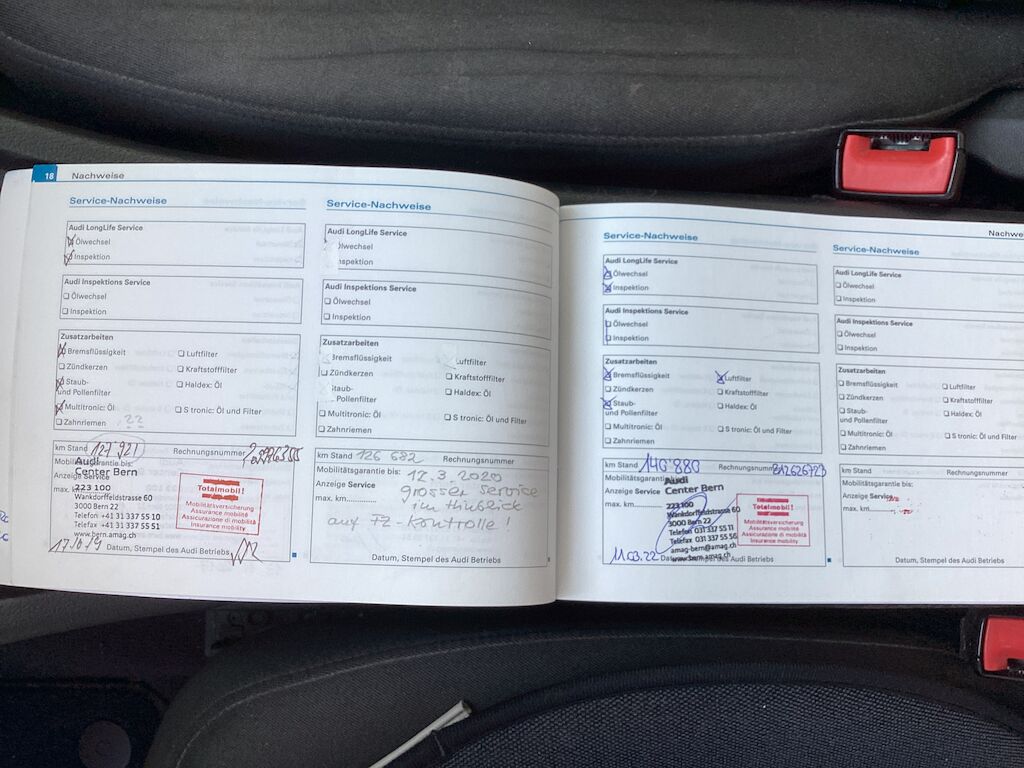 18 Nachweise
Service-Nachweise
Audi LongLife Service
Ölwechsel
Inspektion
Audi Inspektions Service
Ölwechsel
Inspektion
Zusatzarbeiten
Bremsflüssigkeit
Luftfilter
Zündkerzen
Kraftstofffilter
Staub-
und Pollenfilter
Haldex: Öl
Multitronic: Öl
S tronic: Öl und Filter
Zahnriemen
??
km Stand 127 921 Rechnungsnummer
Mobilitätsgarantie bis:
Anzeige Service
max. km
Audi
Center Bern
223 100
Wankdorffeldstrasse 60
3000 Bern 22
Telefon +41 31 337 55 10
Telefax +41 31 337 55 51
www.bern.amag.ch
Totalmobil!
Mobilitätsversicherung
Assurance mobilité
Assicurazione di mobilità
Insurance mobility
Datum, Stempel des Audi Betriebs
Service-Nachweise
Audi LongLife Service
Ölwechsel
Inspektion
Audi Inspektions Service
Ölwechsel
Inspektion
Zusatzarbeiten
Bremsflüssigkeit
Luftfilter
Zündkerzen
Kraftstofffilter
Staub-
Pollenfilter
Haldex: Öl
Multitronic: Öl
S tronic: Öl und Filter
Zahnriemen
km Stand 126 682 Rechnungsnummer
Mobilitätsgarantie bis: 12.3.2020
Anzeige Service grosser Service
max. km im Hinblick
auf FZ-Kontrolle!
Datum, Stempel des Audi Betriebs
Service-Nachweise
Audi LongLife Service
Ölwechsel
Inspektion
Audi Inspektions Service
Ölwechsel
Inspektion
Zusatzarbeiten
Bremsflüssigkeit
Luftfilter
Zündkerzen
Kraftstofffilter
Staub-
und Pollenfilter
Haldex: Öl
Multitronic: Öl
S tronic: Öl und Filter
Zahnriemen
km Stand 140 880 Rechnungsnummer
Mobilitätsgarantie
Anzeige Service
max. km
Audi
Center Bern
223 100
Wankdorffeldstrasse 60
3000 Bern 22
Telefon 031 337 55 11
Telefax 031 337 55 56
amag-bern@amag.ch
www.bern.amag.ch
Totalmobil!
Mobilitätsversicherung
Assurance mobilité
Assicurazione di mobilità
Insurance mobility
11.03.22 Datum, Stempel des Audi Betriebs
Service-Nachweise
Audi LongLife Service
Ölwechsel
Inspektion
Audi Inspektions Service
Ölwechsel
Inspektion
Zusatzarbeiten
Bremsflüssigkeit
Luftfilter
Zündkerzen
Kraftstofffilter
Staub-
und Pollenfilter
Haldex: Öl
Multitronic: Öl
S tronic: Öl und Filter
Zahnriemen
km Stand Rechnungsnummer
Mobilitätsgarantie bis:
Anzeige Service
max. km
Datum, Stempel des Audi Betriebs